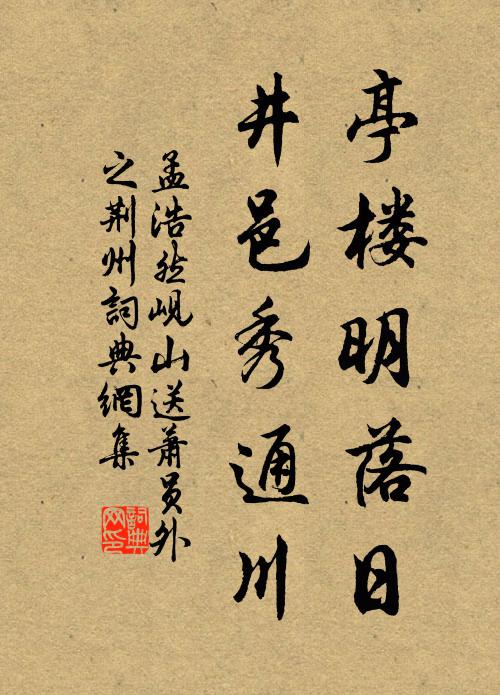 亭楼明落日
井邑秀通川
孟浩然岘山送萧员外
之荆州詞典網集
詞典
网印